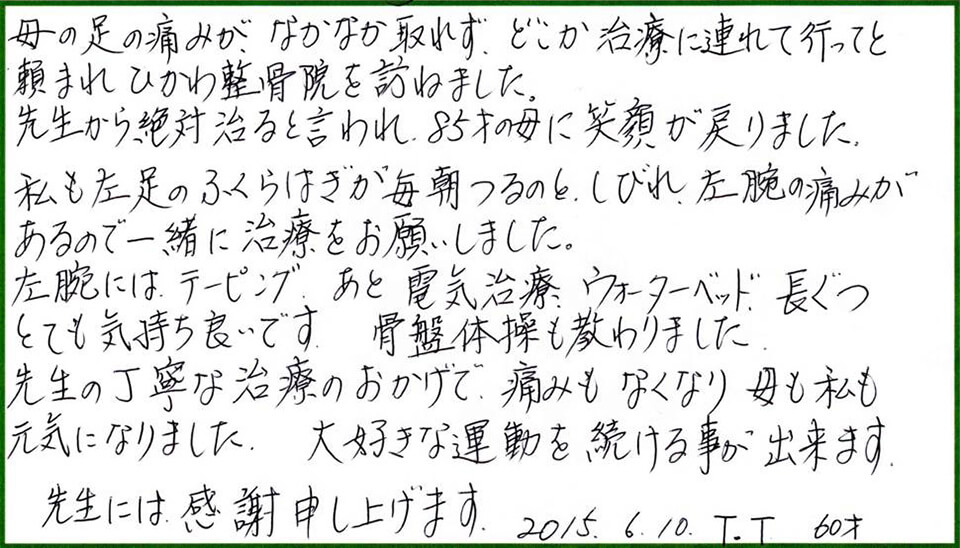 母の足の痛みが、なかなか取れず、どこか治療に連れて行ってと
頼まれひかわ整骨院を訪ねました。
先生から、絶対治ると言われ、85才の母に笑顔が戻りました。
私も左足のふくらはぎが毎朝つるのと、しびれ、左腕の痛みが
あるので一緒に治療をお願いしました。
左腕には、テーピング、あと電気治療、ウォーターベッド、長ぐつ
とても気持ち良いです。 骨盤体操も教わりました。
先生の丁寧な治療のおかげで、痛みもなくなり母も私も
元気になりました。 大好きな運動を続ける事が出来ます。
先生には、感謝申し上げます。 2015. 6. 10. T.T 60才